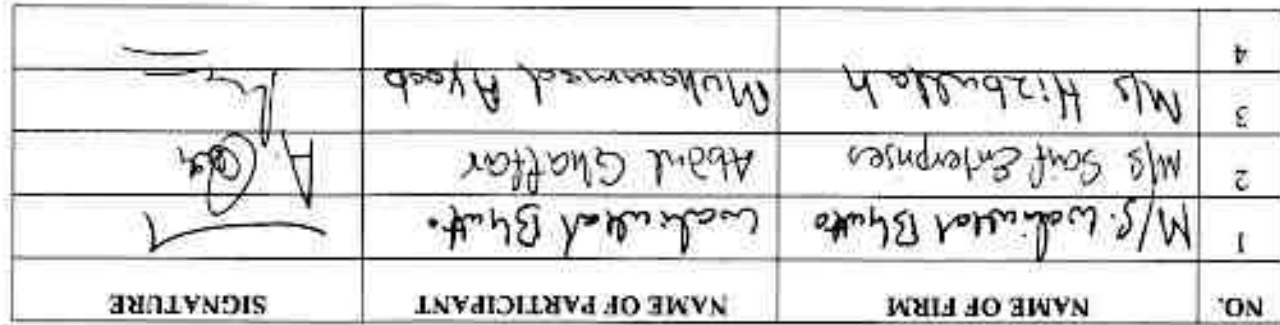 NO. NAME OF FIRM NAME OF PARTICIPANT SIGNATURE
1 M/S. Waliullah Bhutto Waliullah Bhutto.
2 M/S Saif Enterprises Abdul Ghaffar
3 M/s Hizbullah Muhammad Ayoob
4